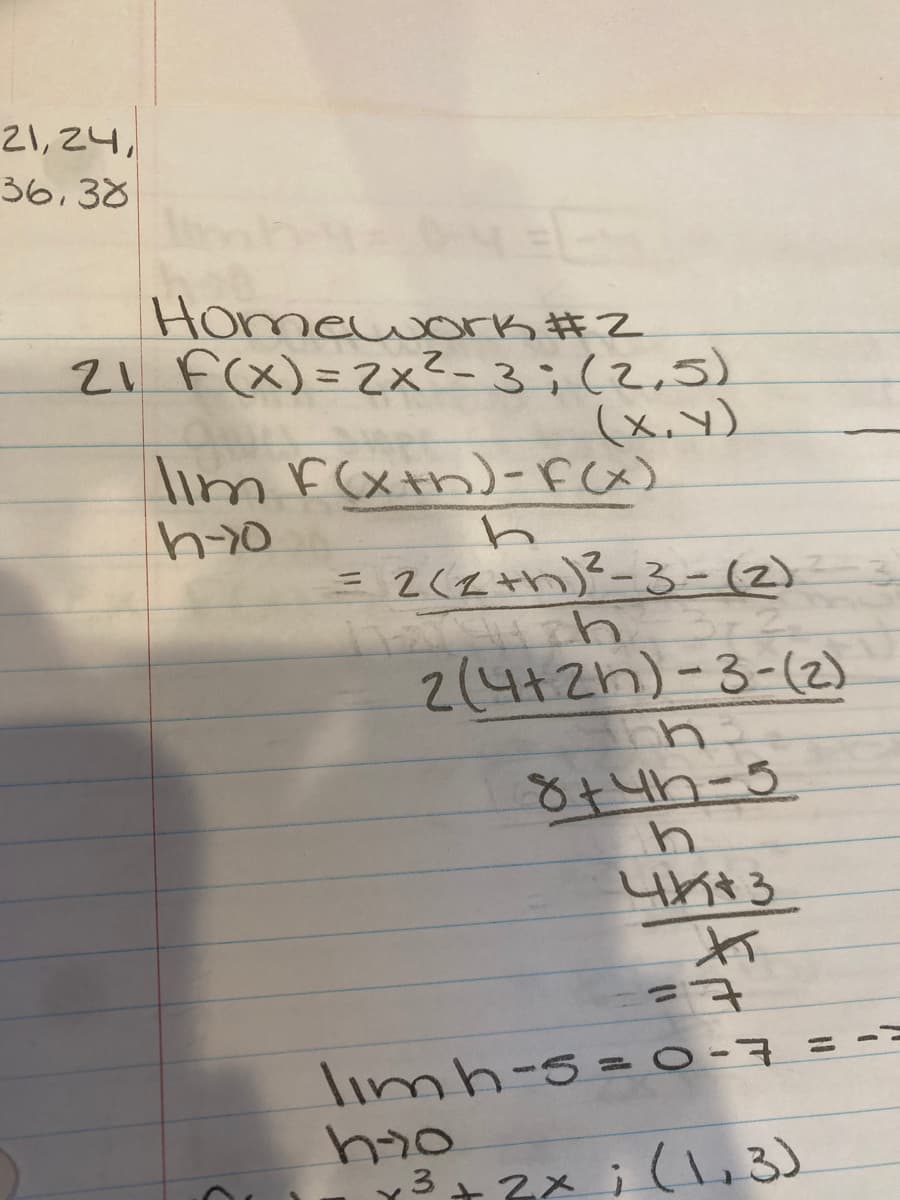 21, 24,
36, 38
Homework #2
21 F(x) = 2x² - 3 ; (2,5)
(x,y)
lim F(x+h) - F(x)
h→0 h
= 2(2+h)² - 3 - (2)
h
2(4+2h) - 3 - (2)
h
8+4h-5
h
4h+3
h
= 7
lim h-5 = 0-7 = -7
h→0
x³ + 2x ; (1,3)